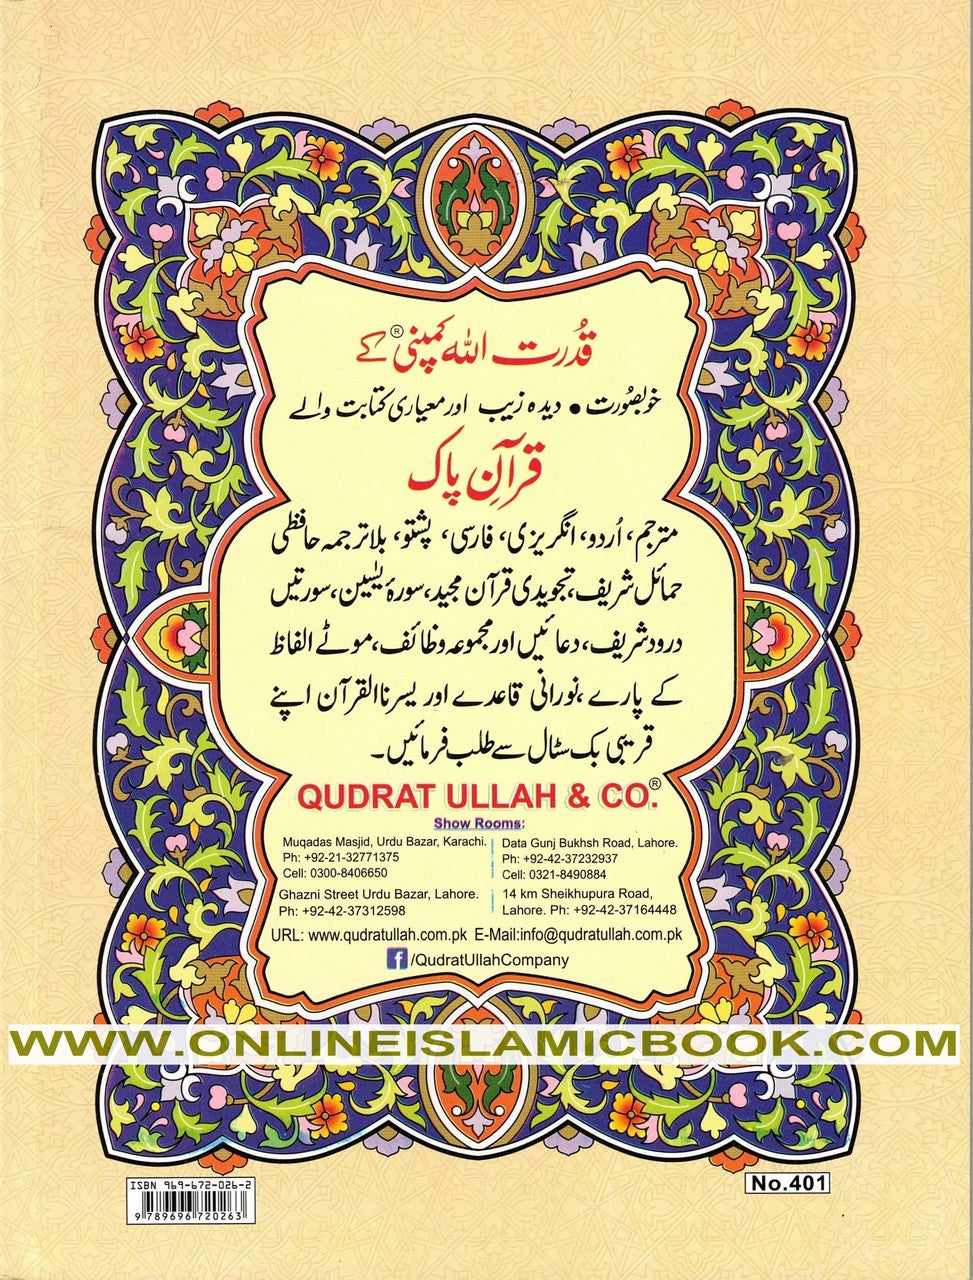 قُدرت اللہ کمپنی® کے
خوبصُورت • دیدہ زیب اور معیاری کتابت والے
قرآنِ پاک
مترجم، اُردو، انگریزی، فارسی، پشتو، بلاترجمہ حافظی
حمائل شریف، تجویدی قرآن مجید، سورۂ یٰسین، سورتیں
درود شریف، دعائیں اور مجموعہ وظائف، موٹے الفاظ
کے پارے، نورانی قاعدے اور یسرناالقرآن اپنے
قریبی بک سٹال سے طلب فرمائیں۔
QUDRAT ULLAH & CO.®
Show Rooms:
Muqadas Masjid, Urdu Bazar, Karachi.
Ph: +92-21-32771375
Cell: 0300-8406650
Data Gunj Bukhsh Road, Lahore.
Ph: +92-42-37232937
Cell: 0321-8490884
Ghazni Street Urdu Bazar, Lahore.
Ph: +92-42-37312598
14 km Sheikhupura Road,
Lahore. Ph: +92-42-37164448
URL: www.qudratullah.com.pk E-Mail:info@qudratullah.com.pk
f /QudratUllahCompany
WWW.ONLINEISLAMICBOOK.COM
ISBN 969-672-026-2
9 789696 720263
No.401